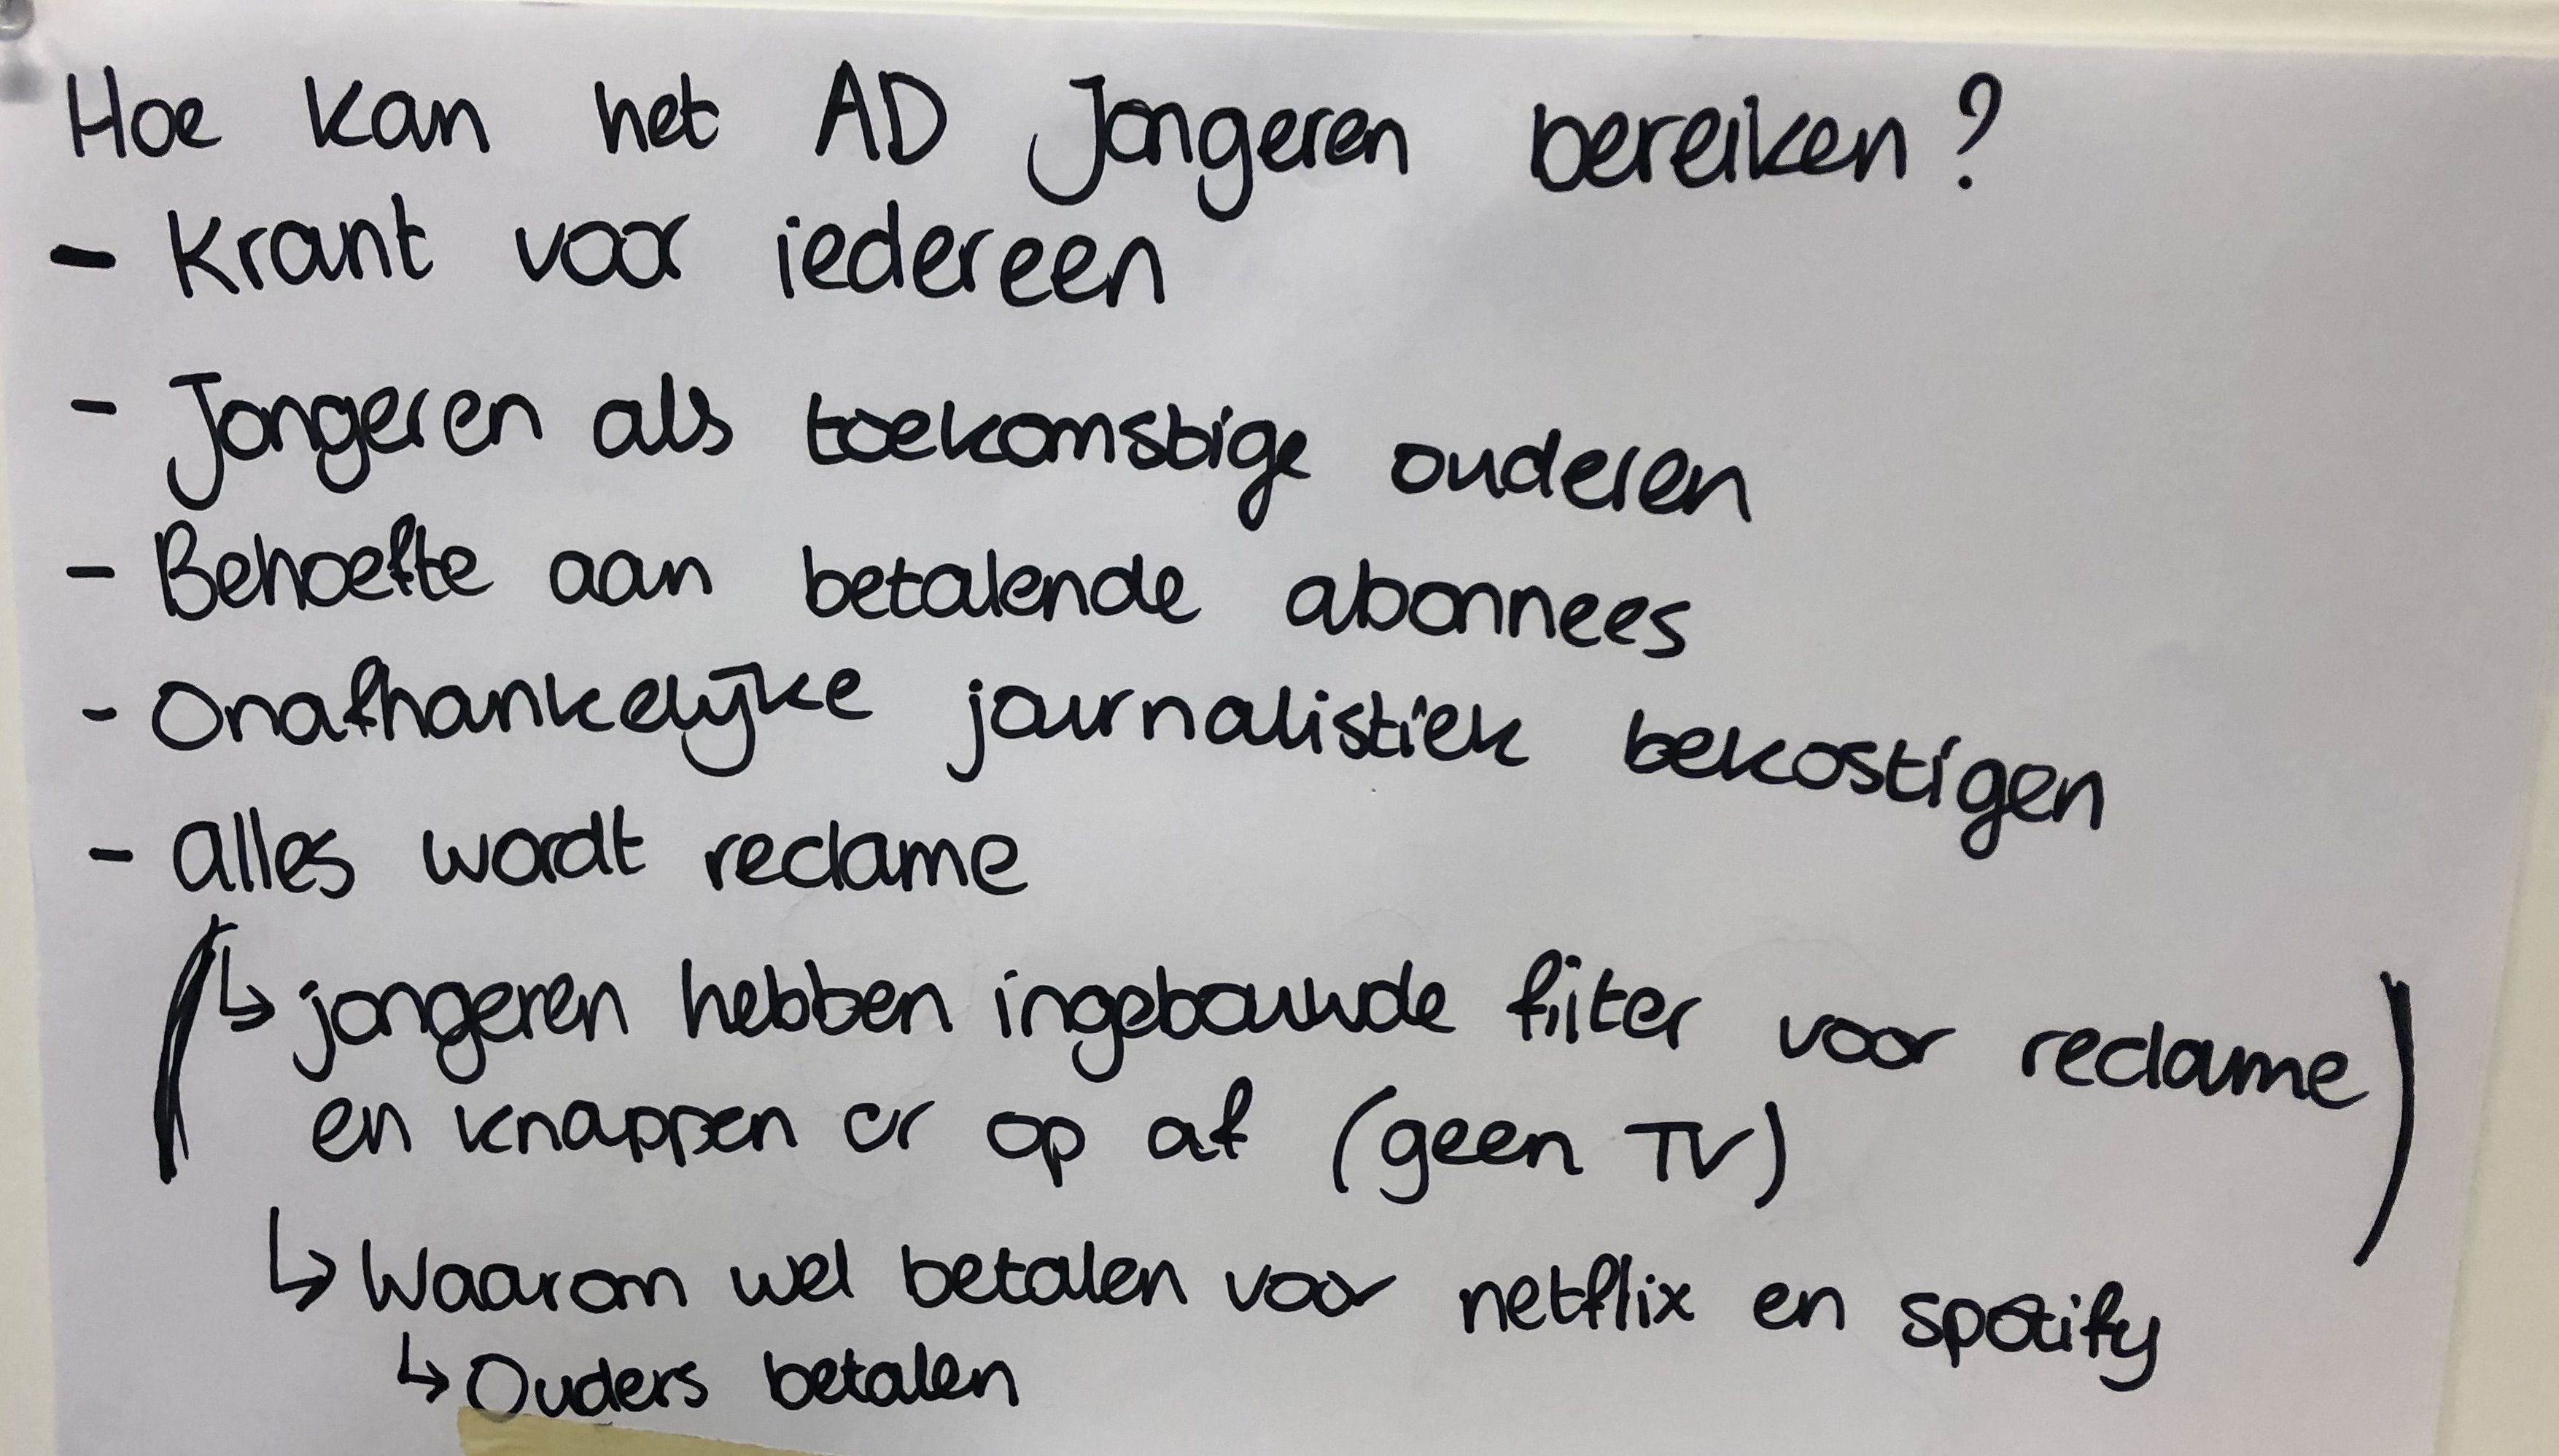 Hoe kan het AD Jongeren bereiken?
- Krant voor iedereen
- Jongeren als toekomstige ouderen
- Behoefte aan betalende abonnees
- Onafhankelijke journalistiek bekostigen
- alles wordt reclame
(↳ jongeren hebben ingebouwde filter voor reclame)
en knappen er op af (geen TV)
↳ Waarom wel betalen voor netflix en spotify
↳ Ouders betalen